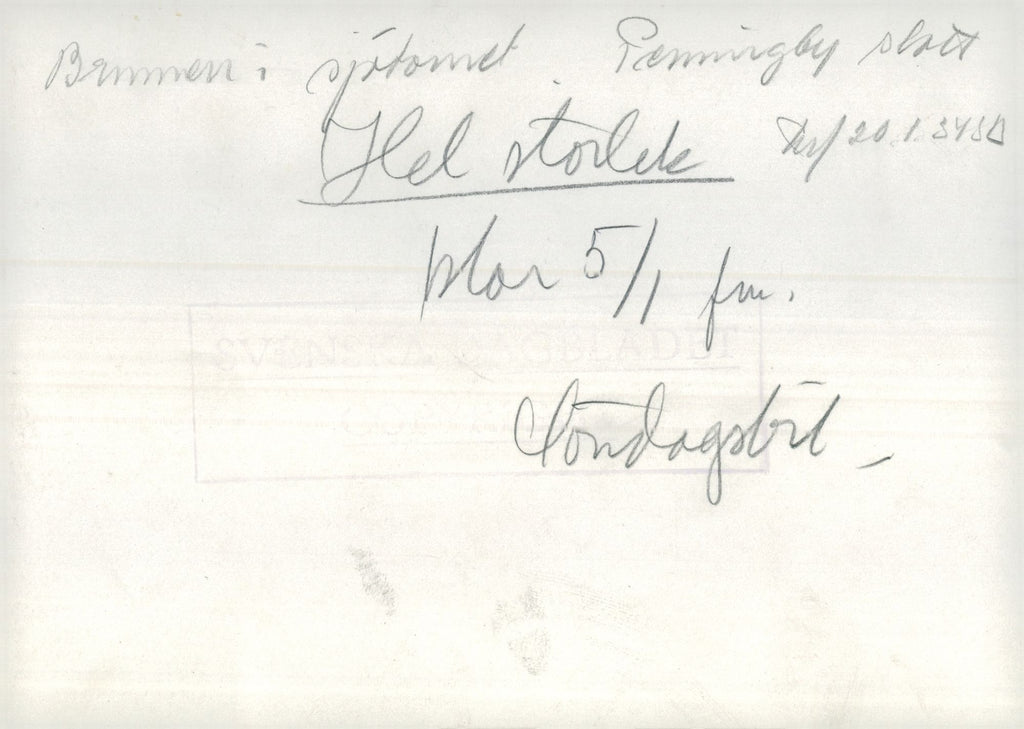 Brunnen i sjötornet. Penningby slott
Hel storlek
20.1.34 SvD
klar 5/1 fm.
SVENSKA DAGBLADET
Söndagsbil -